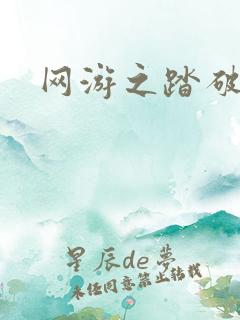 网游之踏破
星辰de梦
未经同意禁止转载